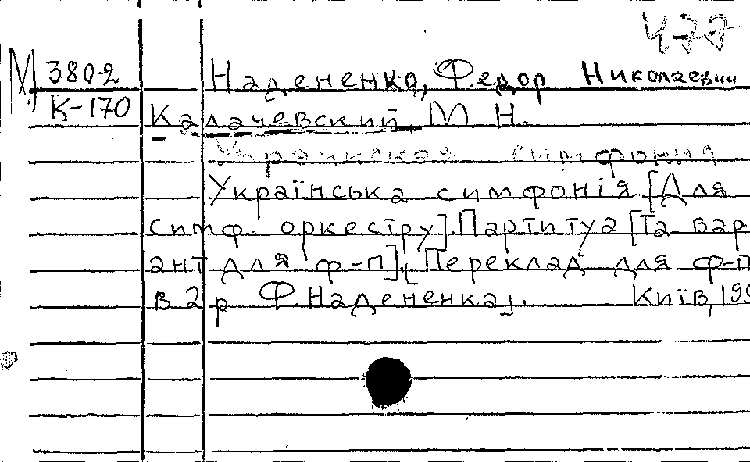 477
М 3802 Надененко, Федор Николаевич
К-170 Калачевский М. Н.
Украинская симфония
Українська симфонія [Для
симф. оркестру]. Партитуа [Та вар
ант для ф-п]. [Переклад для ф-п
в 2 р Ф. Надененка]. Київ, 19